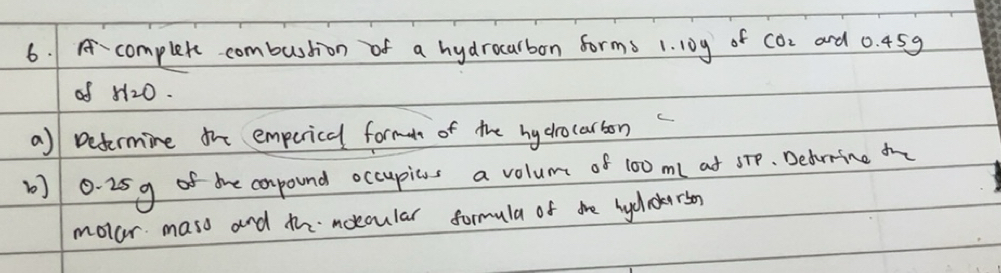 6. A complete combustion of a hydrocarbon forms 1.10g of CO2 and 0.45g
of H2O.
a) Determine the emperical formula of the hydrocarbon
b) 0.25g of the compound occupies a volume of 100 mL at STP. Determine the
molar mass and the molecular formula of the hydrocarbon